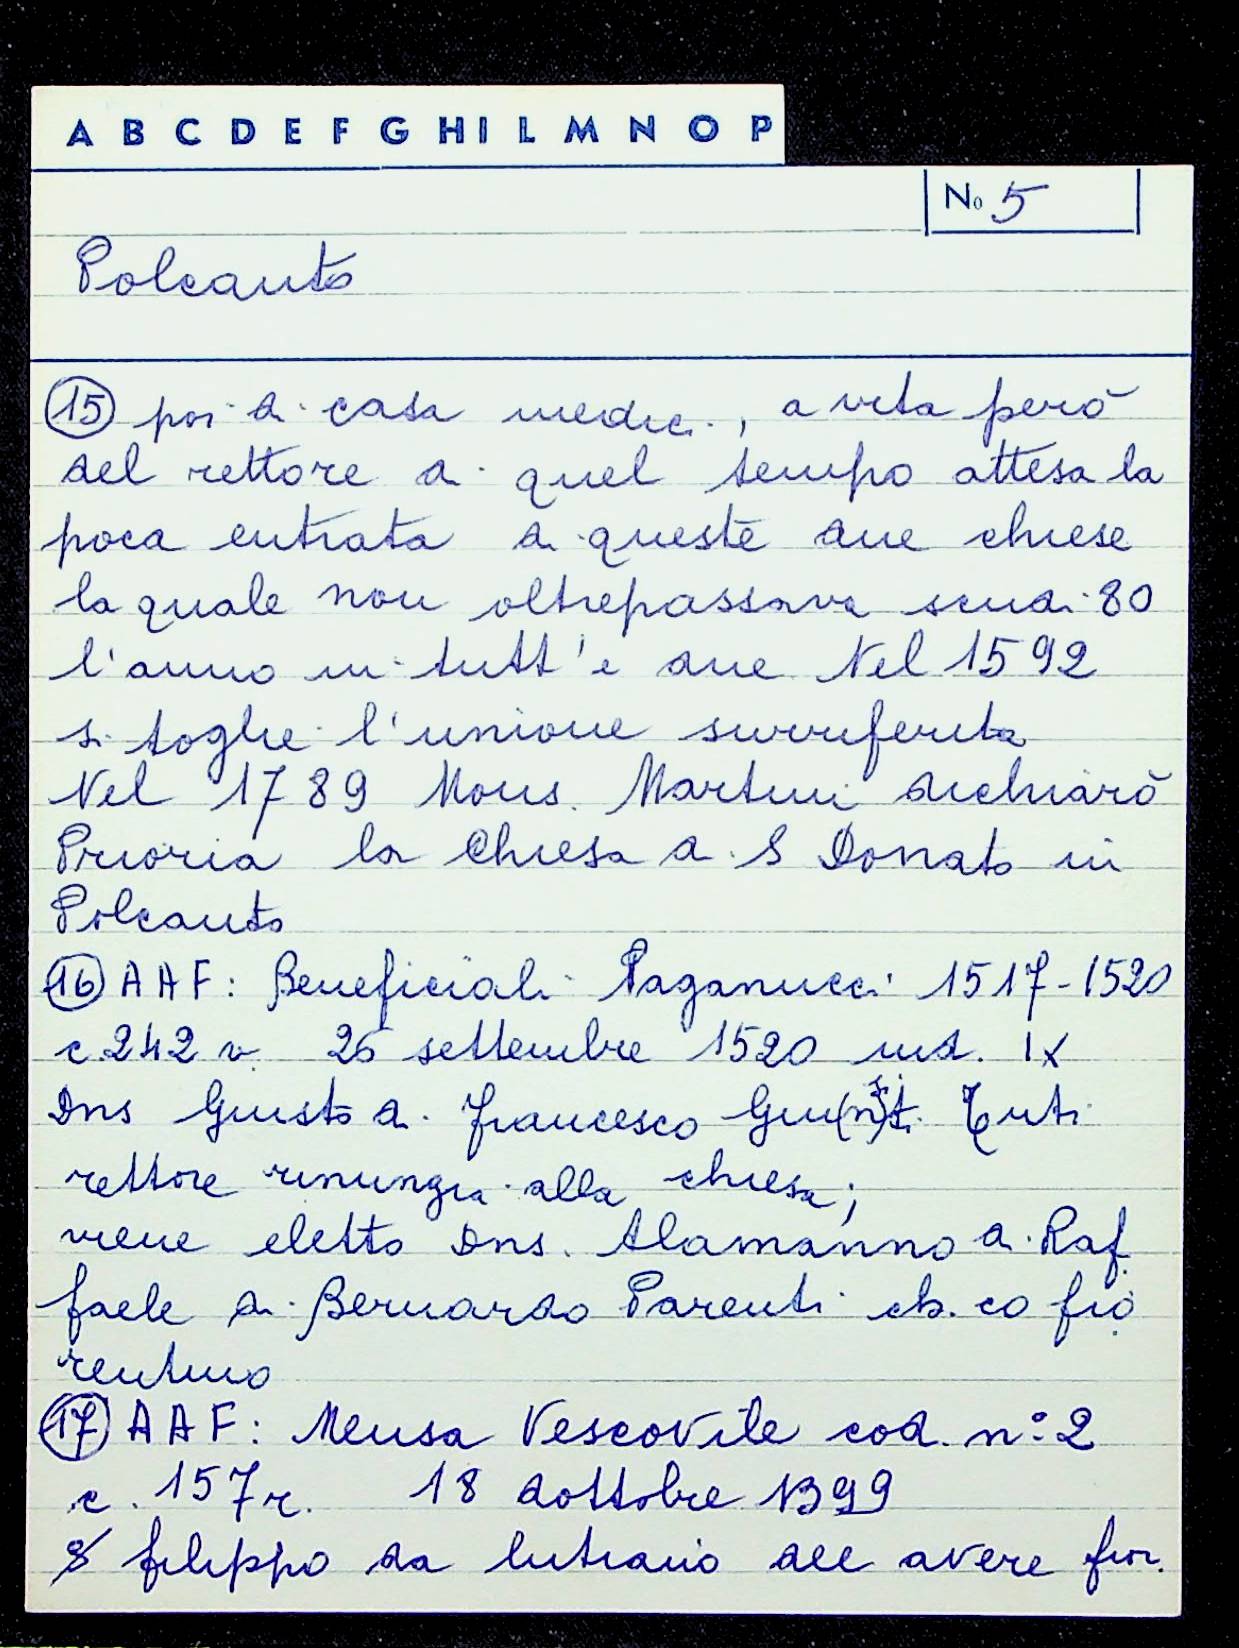 A B C D E F G H I L M N O P
No 5
Polcanto
15 poi di casa medici, a vita però
del rettore di quel tempo attesa la
poca entrata di queste due chiese
la quale non oltrepassava scudi 80
l'anno in tutt'e due Nel 1592
si toglie l'unione surriferita
Nel 1789 Mons. Martini dichiarò
Prioria la Chiesa di S Donato in
Polcanto
16 A A F: Beneficiali Paganucci 1517-1520
c. 242 v. 26 settembre 1520 ind. IX
Dns Giusto di Francesco
rettore rinungia alla chiesa;
viene eletto Dns. Alamanno di Raf
faele di Bernardo Parenti ch.co fio
rentino
17 A A F: Mensa Vescovile cod. n° 2
c. 157 r. 18 dottobre 1399
filippo da lutiano dee avere fior.